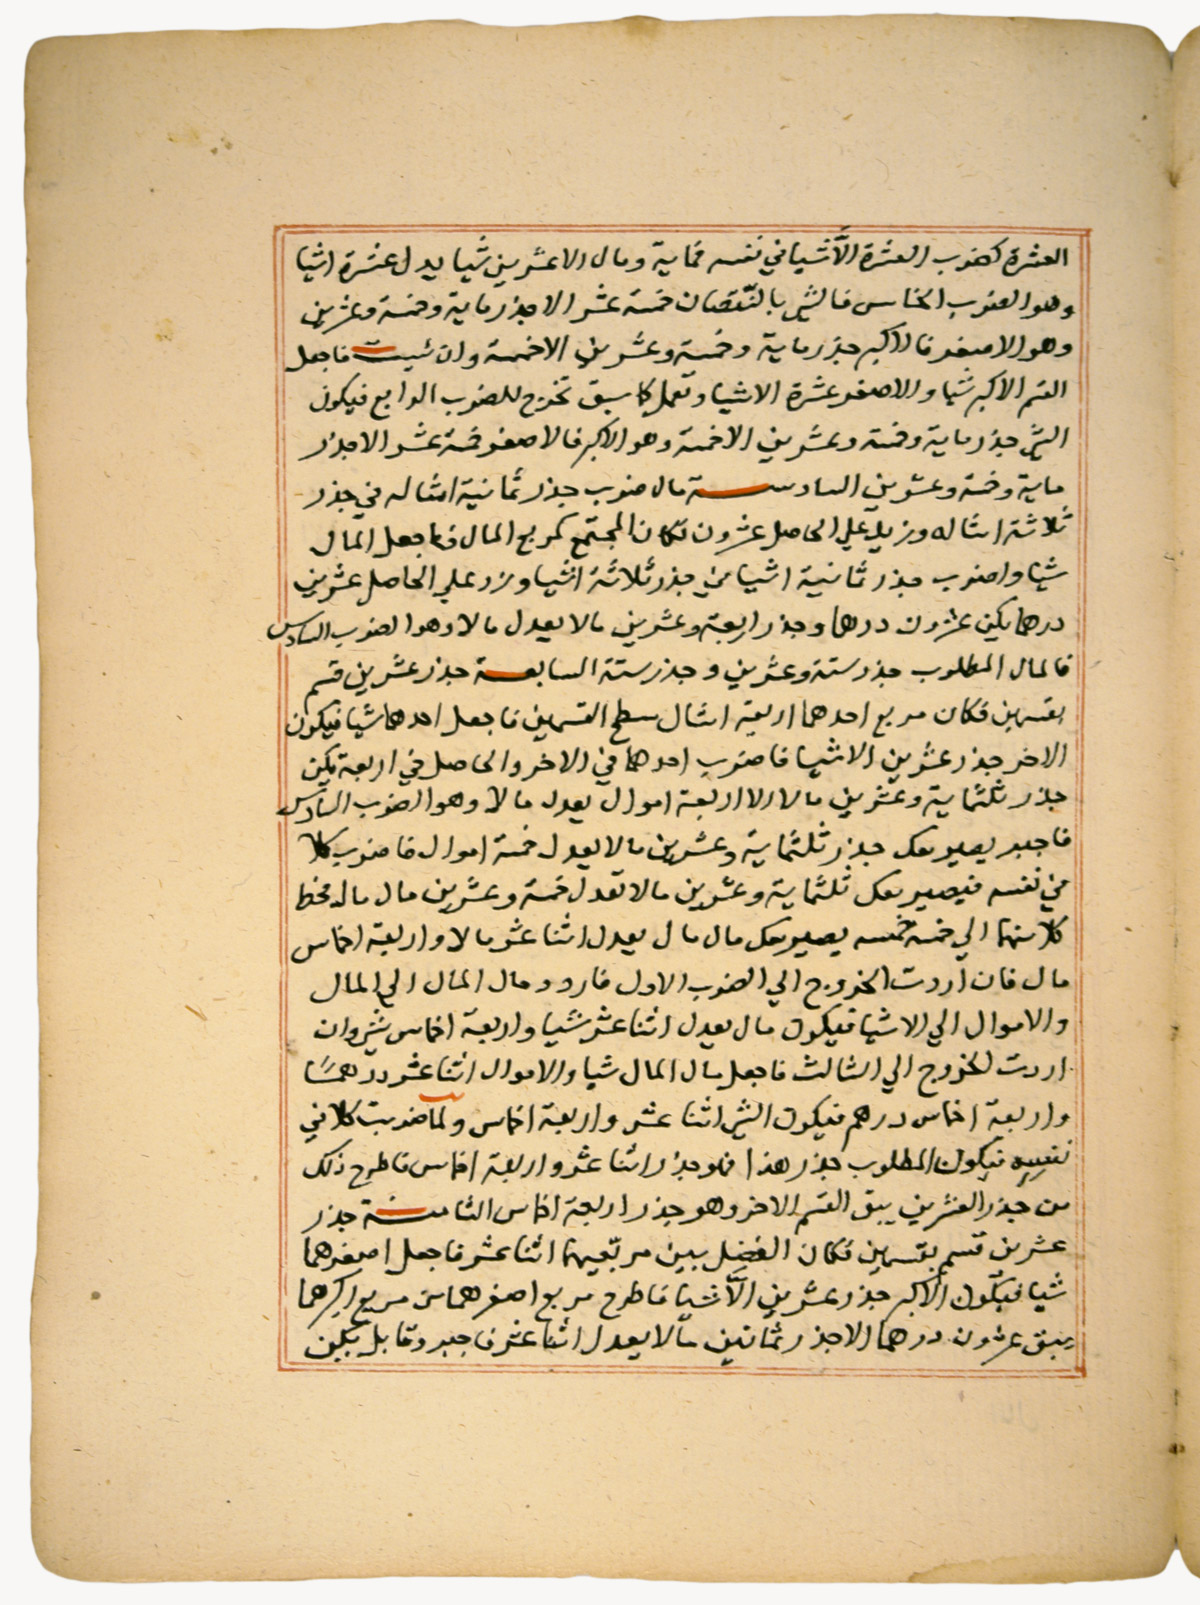 العشرة كضرب العشرة الّا شيا في نفسه فماية ومال الا عشرين شيا يعدل عشرة اشيا
وهو الضرب الخامس فالشي بالنّقصان خمسة عشر الا جذر ماية وخمسة وعشرين
وهو الاصغر فالاكبر جذر ماية وخمسة وعشرين الا خمسة وان شيت فاجعل
القسم الاكبر شيا والاصغر عشرة الا شيا وتعمل كما سبق تخرج للضرب الرابع فيكون
الشي جذر ماية وخمسة وعشرين الا خمسة وهو الاكبر فالاصغر خمسة عشر الا جذر
ماية وخمسة وعشرين السادسة مال ضرب جذر ثمانية امثاله في جذر
ثلاثة امثاله وزيد علي الحاصل عشرون فكان المجتمع كمربع المال فاجعل المال
شيا واضرب جذر ثمانية اشيا في جذر ثلاثة اشيا وزد علي الحاصل عشرين
درهما يكن عشرون درهما وجذر اربعة وعشرين مالا يعدل مالا وهو الضرب السادس
فالمال المطلوب جذر ستة وعشرين وجذر ستة السابعة جذر عشرين قسم
بقسمين فكان مربع احدهما اربعة امثال سطح القسمين فاجعل احدهما شيا فيكون
الاخر جذر عشرين الا شيا فاضرب احدهما في الاخر والحاصل في اربعة يكن
جذر ثلثماية وعشرين مالا الا اربعة اموال يعدل مالا وهو الضرب السادس
فاجبر يصير معك جذر ثلثماية وعشرين مالا يعدل خمسة اموال فاضرب كلا
في نفسه فيصير معك ثلثماية وعشرين مالا تعدل خمسة وعشرين مال مال فحط
كلا منهما الي خمس خمسه يصير معك مال مال يعدل اثنا عشر مالا واربعة اخماس
مال فان اردت الخروج الي الضرب الاول فاردد مال المال الي المال
والاموال الي الاشيا فيكون مال يعدل اثنا عشر شيا واربعة اخماس شي وان
اردت الخروج الي الثالث فاجعل مال المال شيا والاموال اثنا عشر درهمًا
واربعة اخماس درهم فيكون الشي اثنا عشر واربعة اخماس ولما ضربت كلا في
نفسه فيكون المطلوب جذر هذا فهو جذر اثنا عشر واربعة اخماس فاطرح ذلك
من جذر العشرين يبق القسم الاخر وهو جذر اربعة اخماس الثامنة جذر
عشرين قسم بقسمين فكان الفضل بين مربّعيهما اثنا عشر فاجعل اصغرهما
شيا فيكون الاكبر جذر عشرين الّا شيا فاطرح مربع اصغرهما من مربع اكبرهما
يبق عشرون درهما الا جذر ثمانين مالا يعدل اثنا عشر فاجبر وقابل يكن